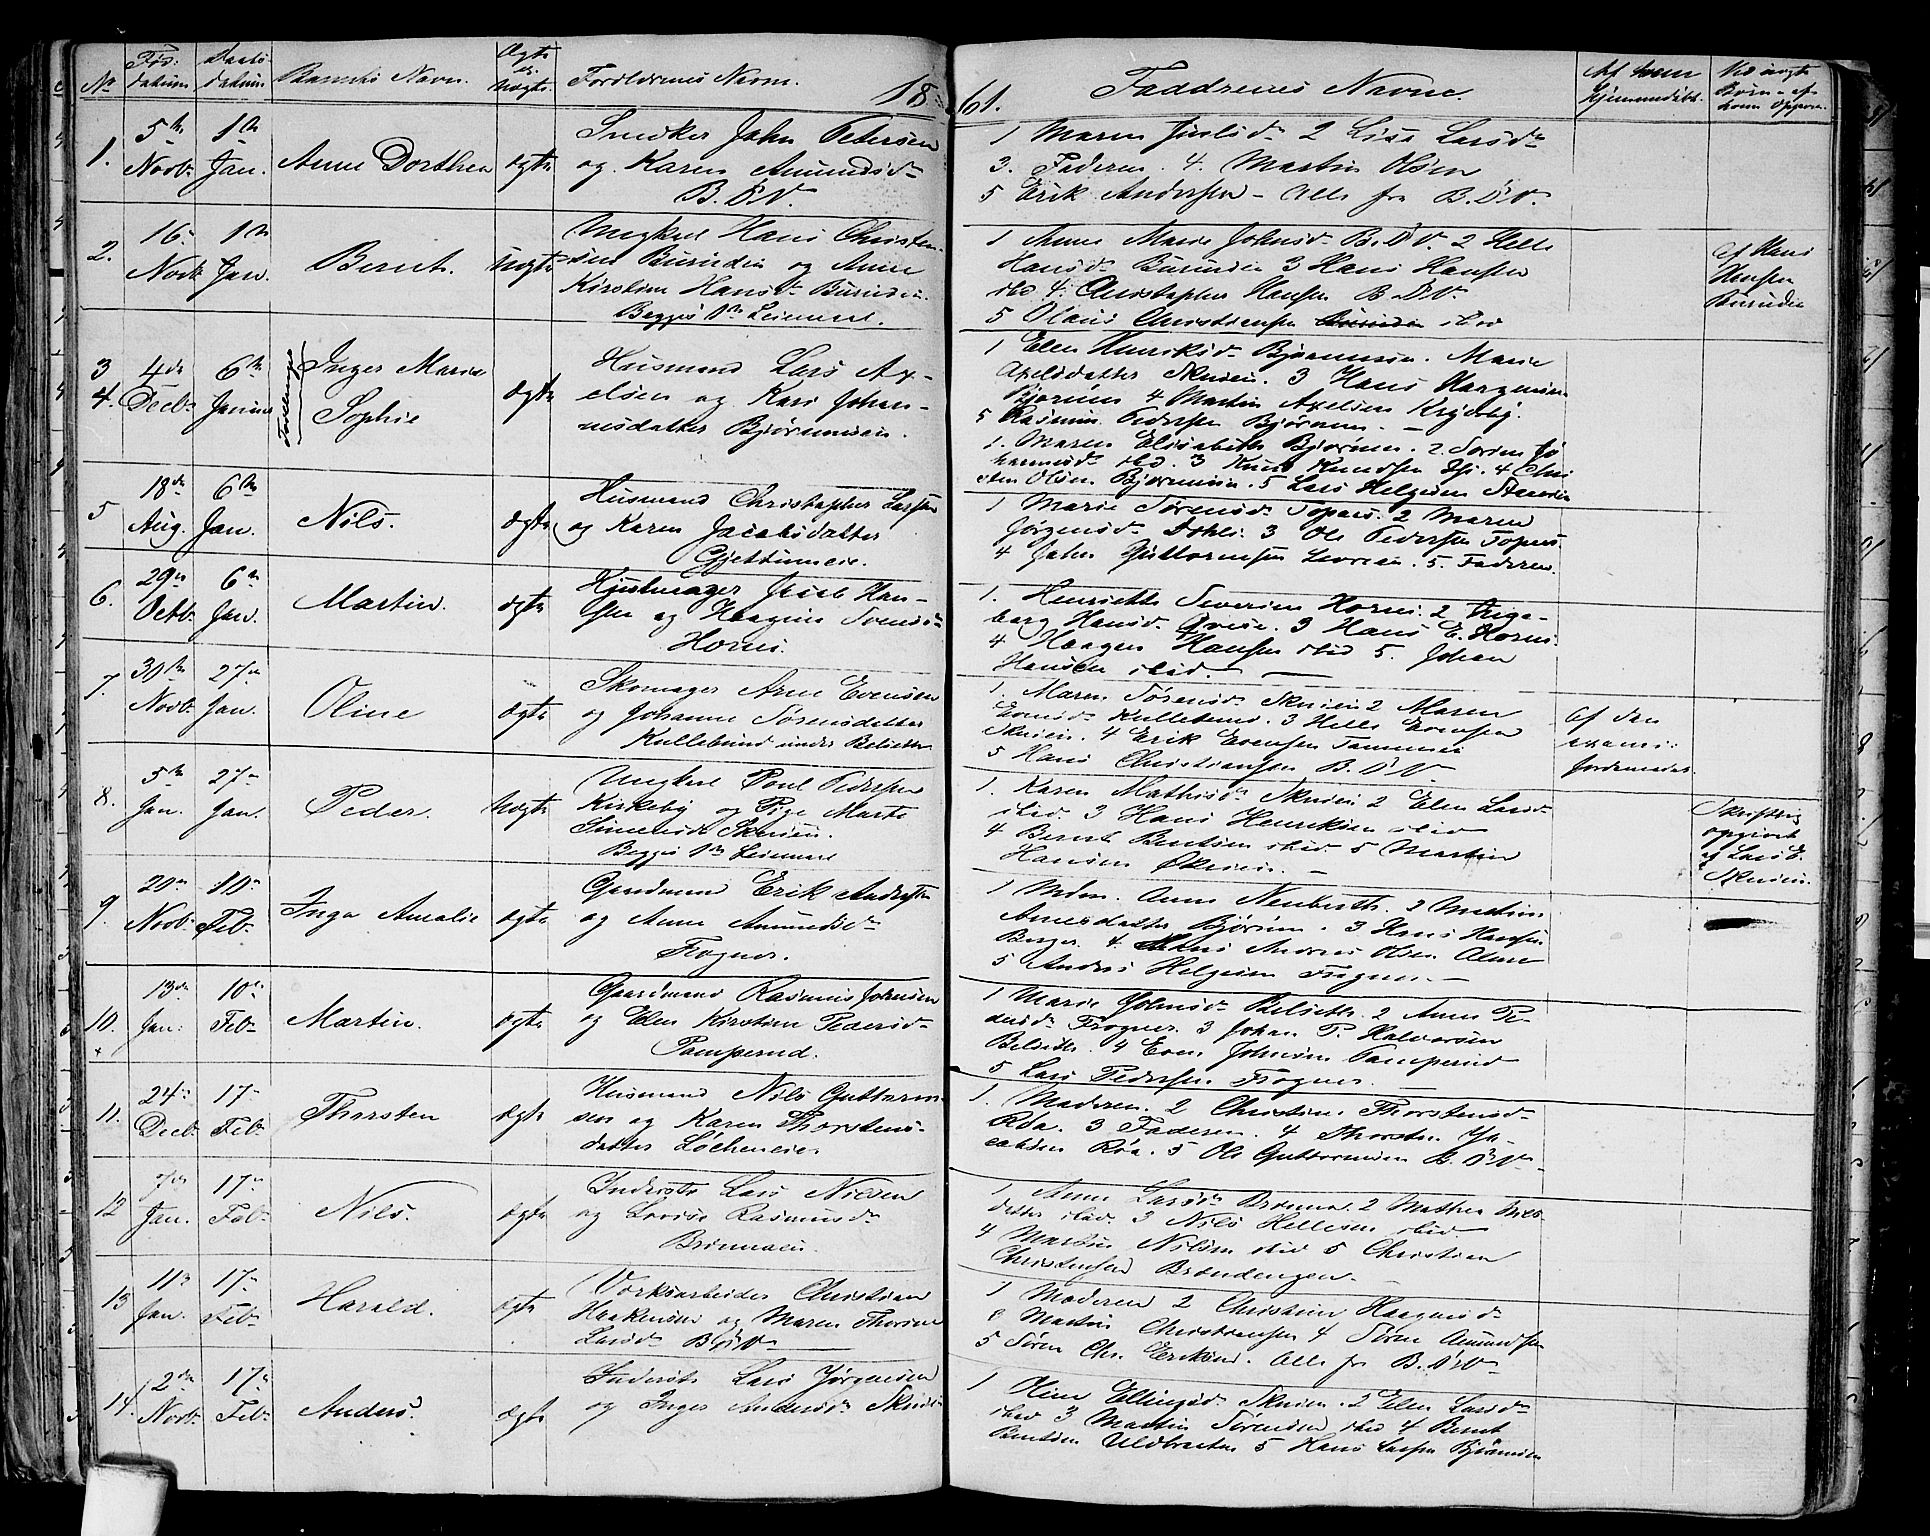 No Fød: datum Daabs datum Barnets Navn. Ægte el. Uægte. Forældrenes Navn. 18
61. Faddrenes Navne. Af hvem hjemmedøbt. Ved uægte Børn af hvem opgiv.
1. 5te Novb. 1te Jan. Anne Dorthea ægte Smeker John Petersen
og Karen Amundsd.
B. D. V.
1 Maren Juulsd. 2 Lisa Larsd.
3. Faderen. 4. Martin Olsen
5 Erik Andersen – Alle fra B. D. V.
2. 16. Novb. 1te Jan. Bernt. Uægte Ungkarl Hans Christen-
sen Burudein og Anne
Kirstine Hansd. Burudein.
Begges 1te Leiermaal.
1 Anne Marie Johnsd. B. D. V. 2 Helle
Hansd. Burudein 3 Hans Hansen
ibid 4. Christopher Hansen B. D. V.
5 Olaus Christiansen ibid
af Hans
Hansen
Burudein
3 4. 4de Decb. 6te Januar Tvillinger Inger Maria
Sophie
ægte Huusmand Lars Ax-
elsen og Kari Johan-
nesdatter Bjørumseie.
1 Elen Henriksd. Bjørumseie. Marie
Axelsdatter Skuien. 3 Hans Haagensen
Bjørum 4 Martin Axelsen Kirkeby.
5 Rasmus Pedersen Bjørum. –
1. Maren Elisabeth Bjørum. 2. Sørine Jo
hannesd. ibid. 3 Knud Knudsen 4 Chri
sten Olsen Bjørumseie. 5 Lars Helgesen
5 18de Aug. 6te Jan. Nils. ægte Huusmand Christopher Larsen
og Karen Jacobsdatter
Gjettumeie.
1 Marie Sørensd. Topaas. 2 Maren
Jørgensd. Dohli. 3 Ole Pedersen Topaas.
4 John Guttormsen 5. Faderen.
6. 29de Octb. 6te Jan. Martin. ægte Hjulmager Jacob Han-
sen og Haagine Svends.
Horni.
1. Henriette Severine Horni. 2 Inge-
borg Hansd. 3 Hans E. Horni.
4 Haagen Hansen ibid 5. Johan
Hansen ibid. –
7. 30te Novb. 27de Jan. Oline ægte Skomager Arne Evensen
og Johanne Sørensdatter
Kullebund under Belseth
1. Maren Sørensd. Skuien 2 Maren
Evensd. Kullebund. 3 Helle Evensen
Skuien. 4 Erik Evensen Tanumeie
5 Hans Christiansen B. D. V.
af den
exami:
Jordemoder.
8. 5te Jan. 27de Jan. Peder. Uægte Ungkarl Poul Pedersen
Kirkeby og Pige Marte
Simensd. Skuien.
Begges 1te Leiermaal
1. Karen Mathisd. Skuien 2 Elen Larsd.
ibid. 3 Hans Henriksen ibid
4 Bernt Bentsen ibid 5 Martin
Hansen Økrien. –
Skriftlig
opgivet
af Lars E.
Skuien.
9. 20de Novb. 10de Feb. Inga Amalie ægte Gaardmand Erik Andersen
og Anne Amundsd.
Frogner.
1 Mdm. Anne Neuberth. 2 Martine
Arnesdatter Bjørum. 3 Hans Hansen
Berger. 4. Hans Andreas Olsen
5 Anders Helgesen Frogner. –
10. 13de Jan: 10de Feb. Martin. ægte Gaardmand Rasmus Johnsen
og Elen Kirstine Pedersd.
Pamperud.
1 Marie Johnsd. Belseth. 2 Anne Pe-
dersd. Frogner. 3 Johan P. Halvorsen
Belseth. 4 Even Johnsen Pamperud
5 Lars Pedersen Frogner. –
11. 24de Decb. 17de Feb. Thorsten ægte Huusmand Nils Guttorm-
sen og Karen Thorstens-
datter Løkkeneie
1. Moderen. 2 Christine Thorstensd.
Røa. 3 Faderen. 4 Thorsten Ja-
cobsen Røa. 5 Ole Guttormsen B. D. V.
12 7de Jan. 17de Feb. Nils. ægte Inderst Lars Nilsen
og Lovise Rasmusd.
Brønnaeie.
1 Anne Larsd. Brønna. 2 Mathea Nils-
datter ibid. 3 Nils Hellesen ibid.
4 Martin Nilsen ibid 5 Christian
Christensen Brændengen. –
13 11te Jan. 17de Feb. Harald. ægte Værksarbeider Christian
Haakensen og Maren Thorine
Larsd. B. D. V.
1 Moderen 2 Christine Haagensd.
3 Martin Christiansen 4 Søren Amundsen
5 Søren Chr. Eriksen. Alle fra B. D. V.
14. 2de Novb. 17de Feb. Anders. ægte Inderst Lars Jørgensen
og Inger Andersd. Skuien
1 Oline Ellingsd. Skuien. 2 Elen Larsd.
ibid 3 Martin Sørensen ibid 4 Bernt
Bentsen Uldbraaten 5 Hans Larsen Bjørumseie